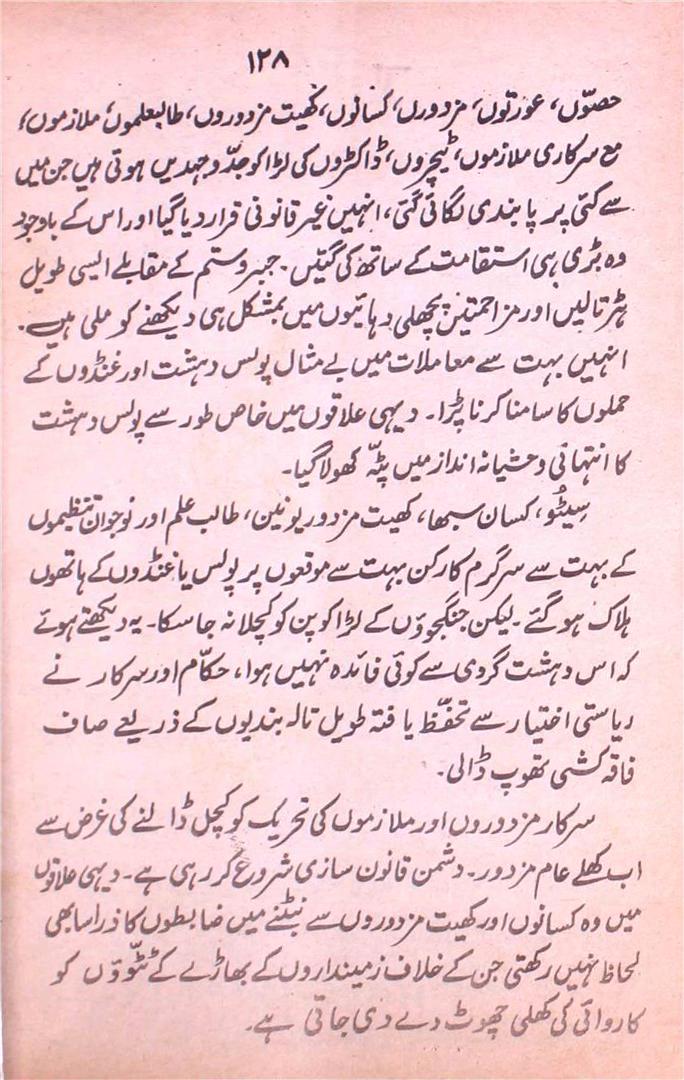 ۱۲۸
حصّوں، عورتوں، مزدورں، کسانوں، کھیت مزدوروں، طالبعلموں، ملازموں،
مع سرکاری ملازموں، ٹیچروں، ڈاکٹروں کی لڑاکو جدّوجہدیں ہوتی ہیں جن میں
سے کئی پر پابندی لگائی گئی، انہیں غیر قانونی قرار دیا گیا اور اس کے باوجود
وہ بڑی ہی استقامت کے ساتھ کی گئیں۔ جبر و ستم کے مقابلے ایسی طویل
ہڑتالیں اور مزاحمتیں پچھلی دہائیوں میں بمشکل ہی دیکھنے کو ملی ہیں۔
انہیں بہت سے معاملات میں بے مثال پولس دہشت اور غنڈوں کے
حملوں کا سامنا کرنا پڑا۔ دیہی علاقوں میں خاص طور سے پولس دہشت
کا انتہائی وحشیانہ انداز میں پٹہّ کھولا گیا۔
سِیٹُو، کسان سبھا، کھیت مزدور یونین، طالب علم اور نوجوان تنظیموں
کے بہت سے سرگرم کارکن بہت سے موقعوں پر پولس یا غنڈوں کے ہاتھوں
ہلاک ہو گئے۔ لیکن جنگجوؤں کے لڑاکوپن کو کچلا نہ جا سکا۔ یہ دیکھتے ہوئے
کہ اس دہشت گردی سے کوئی فائدہ نہیں ہوا، حکّام اور سرکار نے
ریاستی اختیار سے تحفّظ یافتہ طویل تالہ بندیوں کے ذریعے صاف
فاقہ کشی تھوپ ڈالی۔
سرکار مزدوروں اور ملازموں کی تحریک کو کچل ڈالنے کی غرض سے
اب کھلے عام مزدور۔ دشمن قانون سازی شروع کر رہی ہے۔ دیہی علاقوں
میں وہ کسانوں اور کھیت مزدوروں سے نبٹنے میں ضابطوں کا ذرا سا بھی
لحاظ نہیں رکھتی جن کے خلاف زمینداروں کے بھاڑے کے ٹٹّوؤں کو
کاروائی کی کھلی چھوٹ دے دی جاتی ہے۔